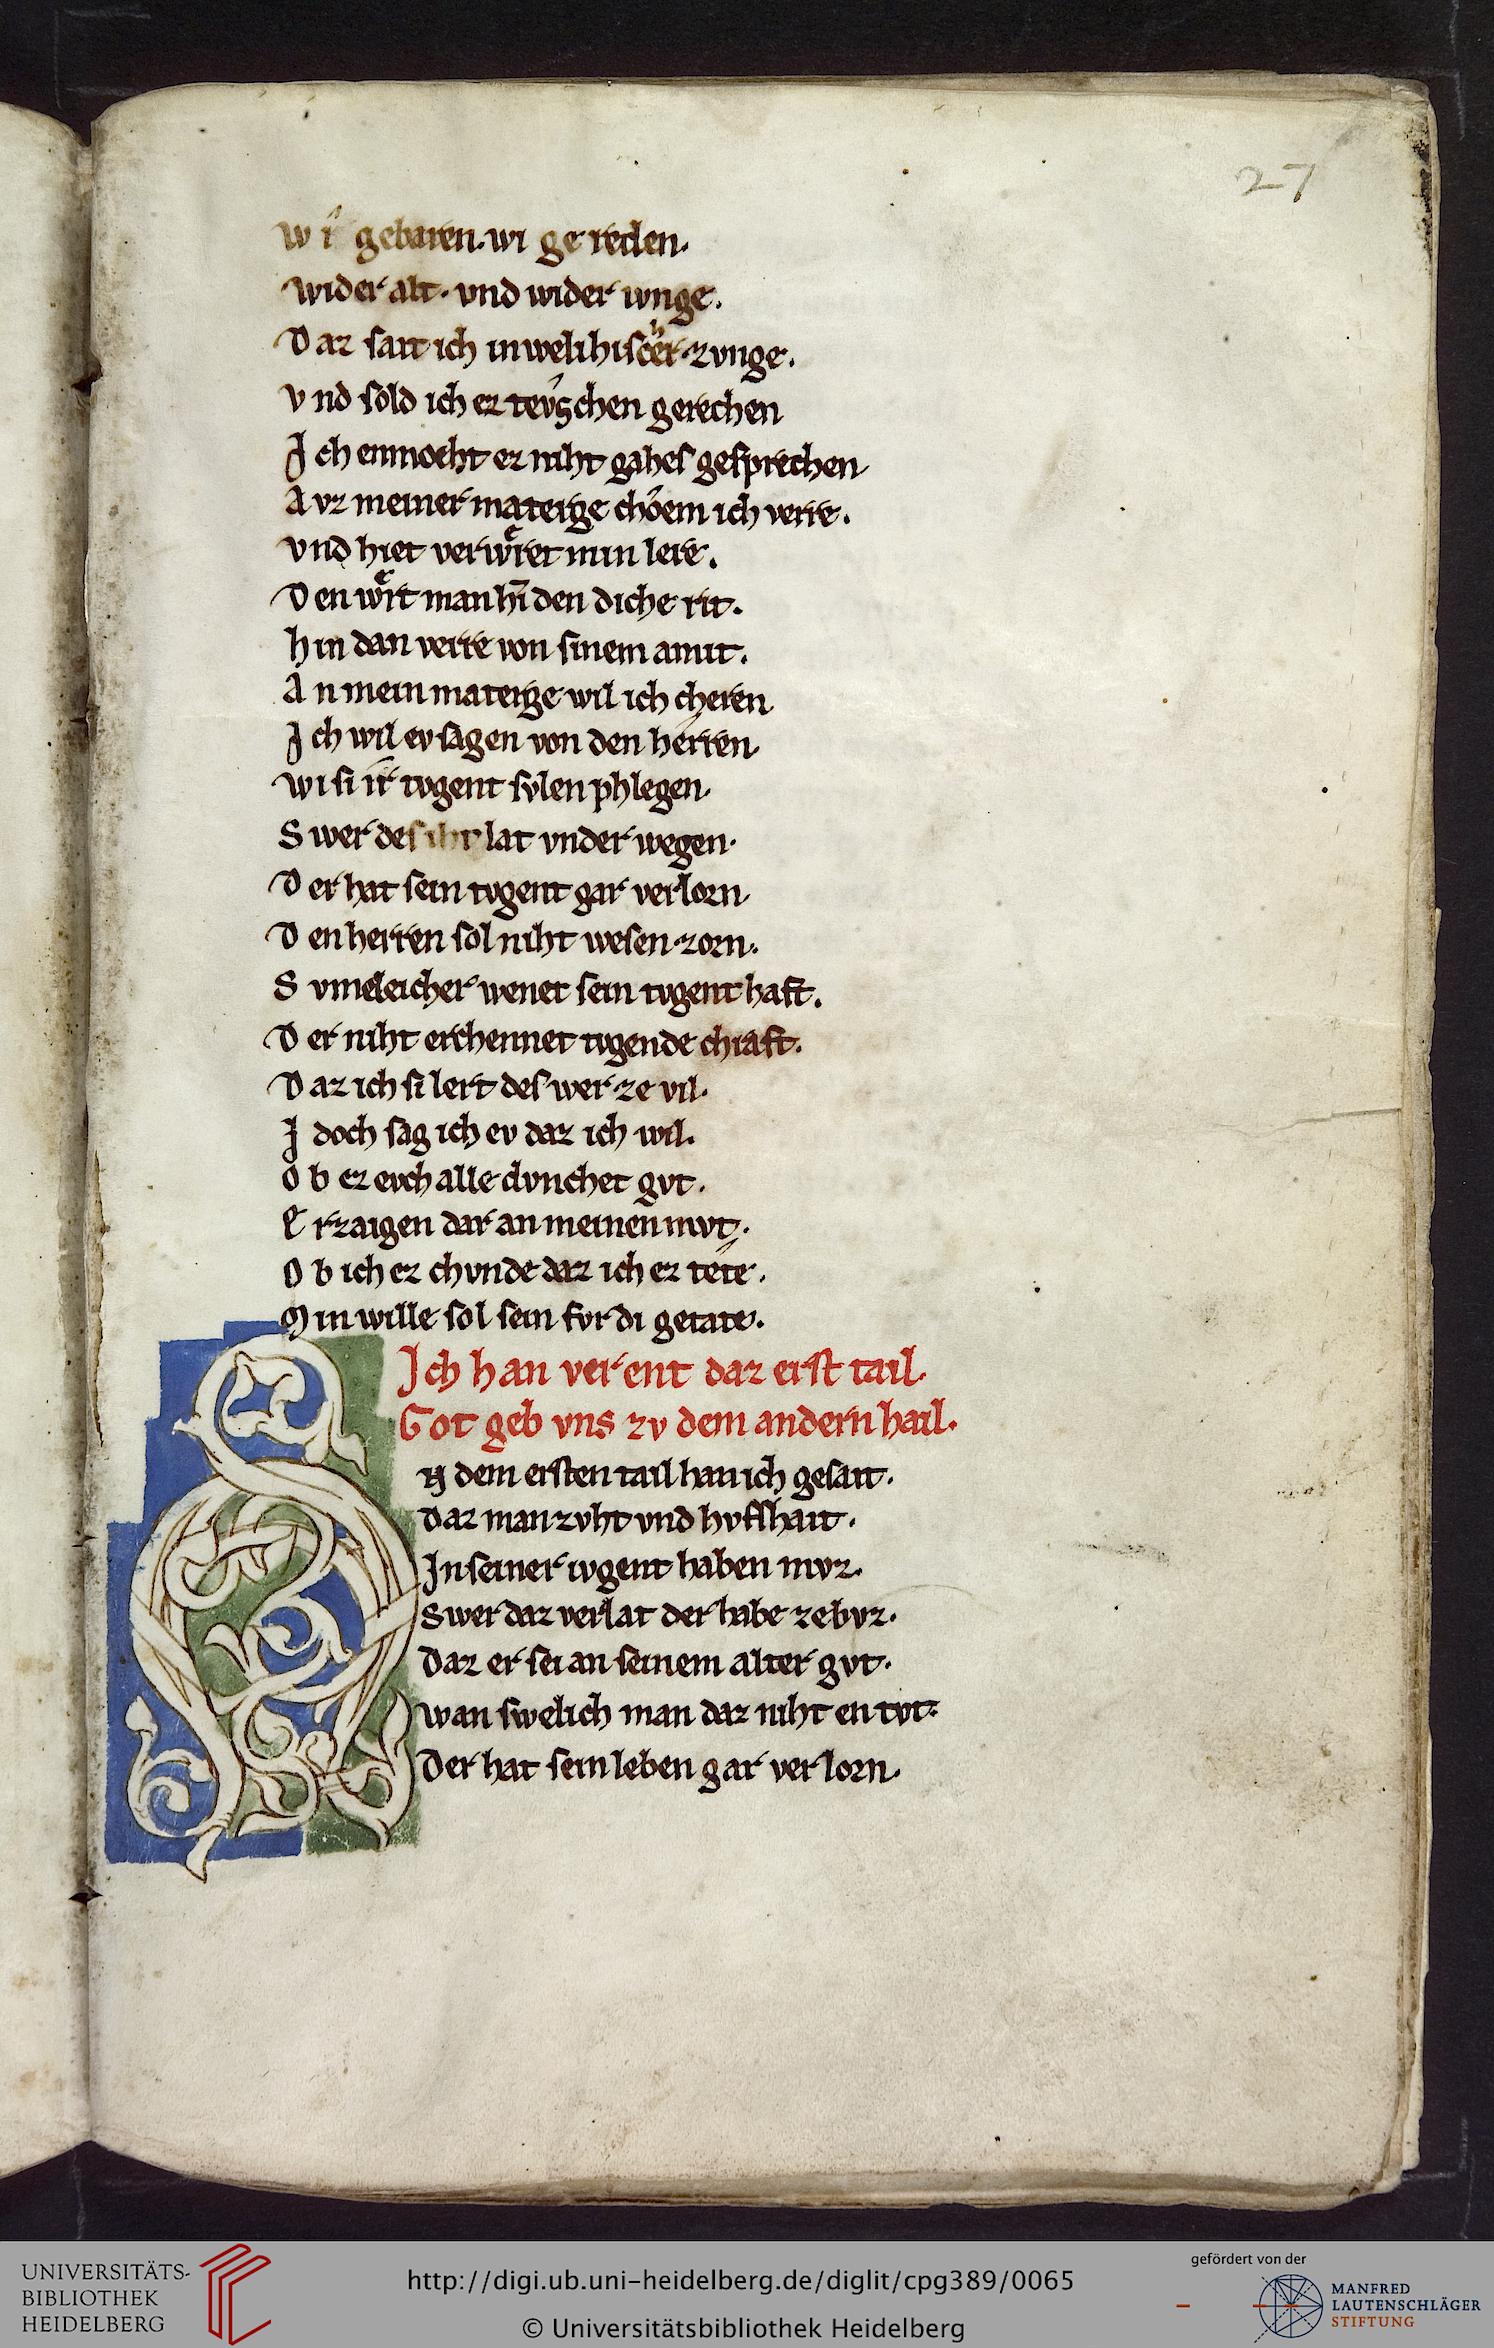 27
wi gebaren. wi gereden.
wider alt. vnd wider ivnge.
Daz sait ich in welihischer zvnge.
Vnd sold ich ez tevschen gerechen
Ich enmocht ez niht gahes gesprechen
Avz meiner materige chom ich verre.
vnd hiet verwerret min lere.
Den wirt man hinden diche rit.
hin dan verre von sinem amit.
An mein materige wil ich cheren
Ich wil ev sagen von den herren.
wi si ir tvgent svlen phlegen.
Swer des iht lat vnder wegen.
Der hat sein tvgent gar verlorn.
Den herren sol niht wesen zorn.
Svmeleicher wenet sein tvgent haft.
Der niht erchennet tvgende chraft.
Daz ich si lert des wer ze vil.
Idoch sag ich ev daz ich wil.
Ob ez evch alle dvnchet gvt.
Erzaigen dar an meinen mvt.
Ob ich ez chvnde daz ich ez tete.
Min wille sol sein fvr di getate.
Ich han verent daz erst tail.
Got geb vns zv dem andern hail.
Jn dem ersten tail han ich gesait.
Daz man zvht vnd hvfshait.
In seiner ivgent haben mvz.
Swer daz verlat der habe ze bvz.
Daz er sei an seinem alter gvt.
wan swelich man daz niht en tvt.
Der hat sein leben gar verlorn.
UNIVERSITÄTS-
BIBLIOTHEK
HEIDELBERG
http://digi.ub.uni-heidelberg.de/diglit/cpg389/0065
© Universitätsbibliothek Heidelberg
gefördert von der
MANFRED
LAUTENSCHLÄGER
STIFTUNG